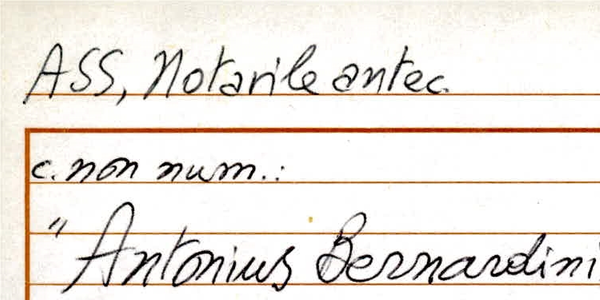 ASS, Notarile antec.
c. non num.:
"Antonius Bernardini